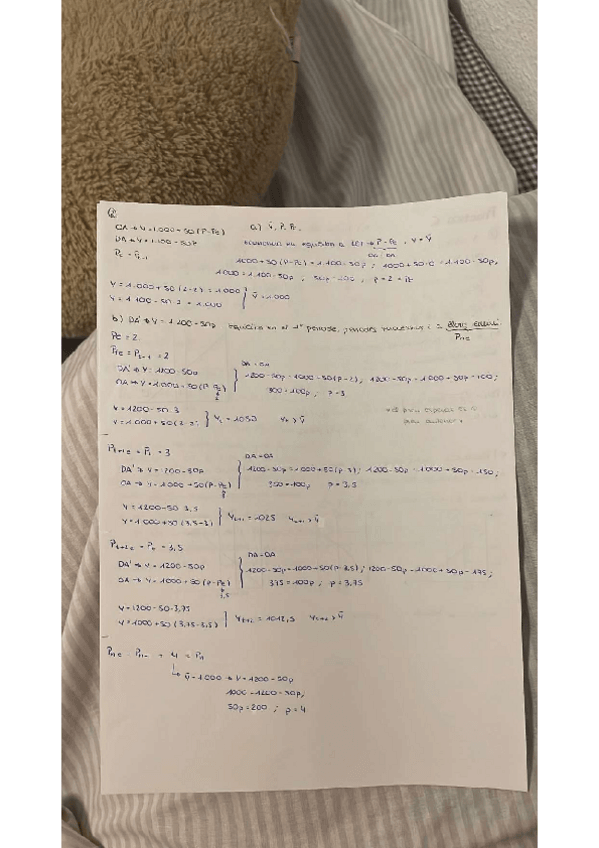 ②
OA → Y = 1.000 + 50 (P - Pe)   a) Ȳ, P, Pe.
DA → Y = 1.100 - 50P   economia en equilibrio a LP → P = Pe, Y = Ȳ
OA = DA
1000 + 50 (P - Pe) = 1.100 - 50p ; 1000 + 50·0 = 1.100 - 50p,
1000 = 1.100 - 50p, 50p = 100, p = 2
Y = 1.000 + 50 (2-2) = 1.000
Y = 1.100 - 50·2 = 1.000 } Ȳ = 1.000
b) DA' → Y = 1200 - 50p
Pe = 2
Pte = Pt-1 = 2
DA = OA
DA' → Y = 1200 - 50p
OA → Y = 1.000 + 50 (P - Pe) } 1200 - 50p = 1000 + 50 (P - 2), 1200 - 50p = 1000 + 50p - 100;
2   300 = 100p, p = 3
Y = 1200 - 50·3
Y = 1.000 + 50 (3-2) } Yt = 1050   Yt > Ȳ
Pt+1e = Pt = 3
DA = OA
DA' → Y = 1200 - 50p
OA → Y = 1000 + 50 (P - Pe) } 1200 - 50p = 1000 + 50 (P - 3); 1200 - 50p = 1000 + 50p - 150;
3   350 = 100p   P = 3,5
Y = 1200 - 50·3,5
Y = 1.000 + 50 (3,5 - 3) } Yt+1 = 1025   Yt+1 > Ȳ
Pt+2e = Pt = 3,5
DA = OA
DA' → Y = 1200 - 50p
OA → Y = 1000 + 50 (P - Pe) } 1200 - 50p = 1000 + 50 (P - 3,5), 1200 - 50p = 1000 + 50p - 175;
3,5   375 = 100p ; p = 3,75
Y = 1200 - 50·3,75
Y = 1000 + 50 (3,75 - 3,5) } Yt+2 = 1012,5   Yt+2 > Ȳ
4 = Pn
Ȳ = 1000 → Y = 1200 - 50p
1000 = 1200 - 50p,
50p = 200 ; p = 4